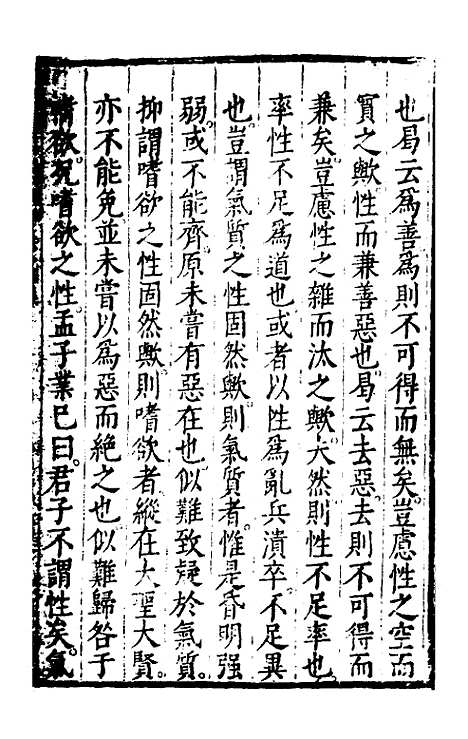 也曷云爲善爲則不可得而無矣豈慮性之空而
實之歟性而兼善惡也曷云去惡去則不可得而
兼矣豈慮性之雜而汰之歟大然則性不足率也
率性不足爲道也或者以性爲亂兵潰卒不足異
也豈謂氣質之性固然歟則氣質者惟是昏明强
弱或不能齊原未嘗有惡在也似難致疑於氣質
抑謂嗜欲之性固然歟則嗜欲者縱在大聖大賢
亦不能免並未嘗以爲惡而絕之也似難歸咎于
嗜欲況嗜欲之性孟子業已曰君子不謂性矣氣